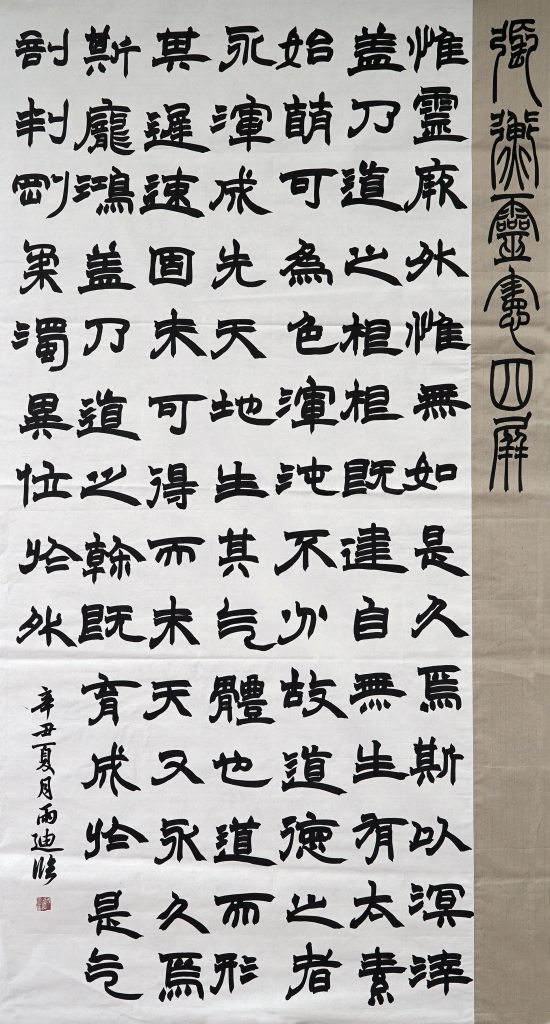 張衡靈憲四屏
惟靈厥外惟無如是久焉斯以溟涬
盖乃道之根根既建自無生有太素
始萌可為色渾沌不分故道德之者
永渾成先天地生其气體也道而形
其遲速固未可得而未天又永久焉
斯龐鴻盖乃道之幹既育成於是气
剖判剛柔濁異位於外
辛丑夏月雨迪